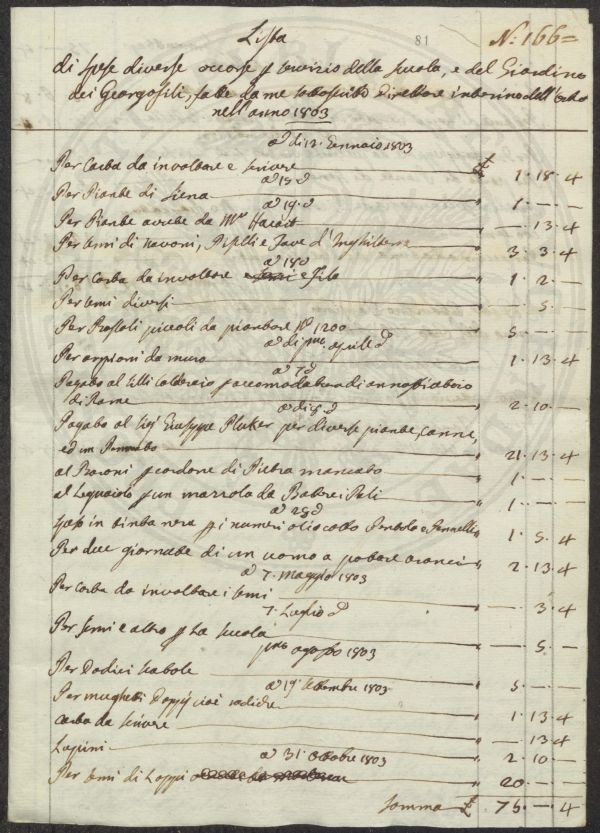 81
Nº: 166=
Lista
di Spese diverse occorse p servizio della Scuola, e del Giardino
dei Georgofili, fatte da me sottoscritto Direttore interino dell'
nell'anno 1803
a di 12. Gennaio 1803
Per Carta da involtare e scrivere £ 1. 18. 4
a 15. d
Per Piante di Siena " 1. — —
a 19. d
Per Piante avute da Mr. " — . 13. 4
Per semi di navoni, Piselli e Fave d'Inghilterra " 3. 3. 4
a 18 d
Per Carta da involtare e filo " 1. 2. —
Per semi diversi " — 5. —
Per piccoli da piantare No. 1200 " 5. — —
a di pmo. aprile d
Per arpioni da muro " 1. 13. 4
a 7 d
Pagato al calderaio p accomodatura di annaffiatoio
di Rame " 2. 10. —
a di 8. d
Pagato al Sig Giuseppe per diverse piante, canne,
ed un Pennato " 21. 13. 4
al Baroni p cordone di Pietra " 1. — —
al Legnaiolo p un da Batter i Pali " 1. — —
a 25 d
in tinta nera p i numeri olio cotto e Pennelli " 1. 5. 4
Per due giornate di un uomo a potare aranci " 2. 13. 4
a 7. Maggio 1803
Per carta da involtare i semi " — . 3. 4
7. Luglio d
Per semi e altro p La Scuola " — 5. —
pmo agosto 1803
Per Dodici " 5. — —
a 19. Settembre 1803
Per mughetti Doppj cioè radiche " 1. 13. 4
carta da scrivere " — . 13. 4
Lupini " 2. 10. —
a 31. Ottobre 1803
Per semi di " 20 — —
Somma £ 75. — 4